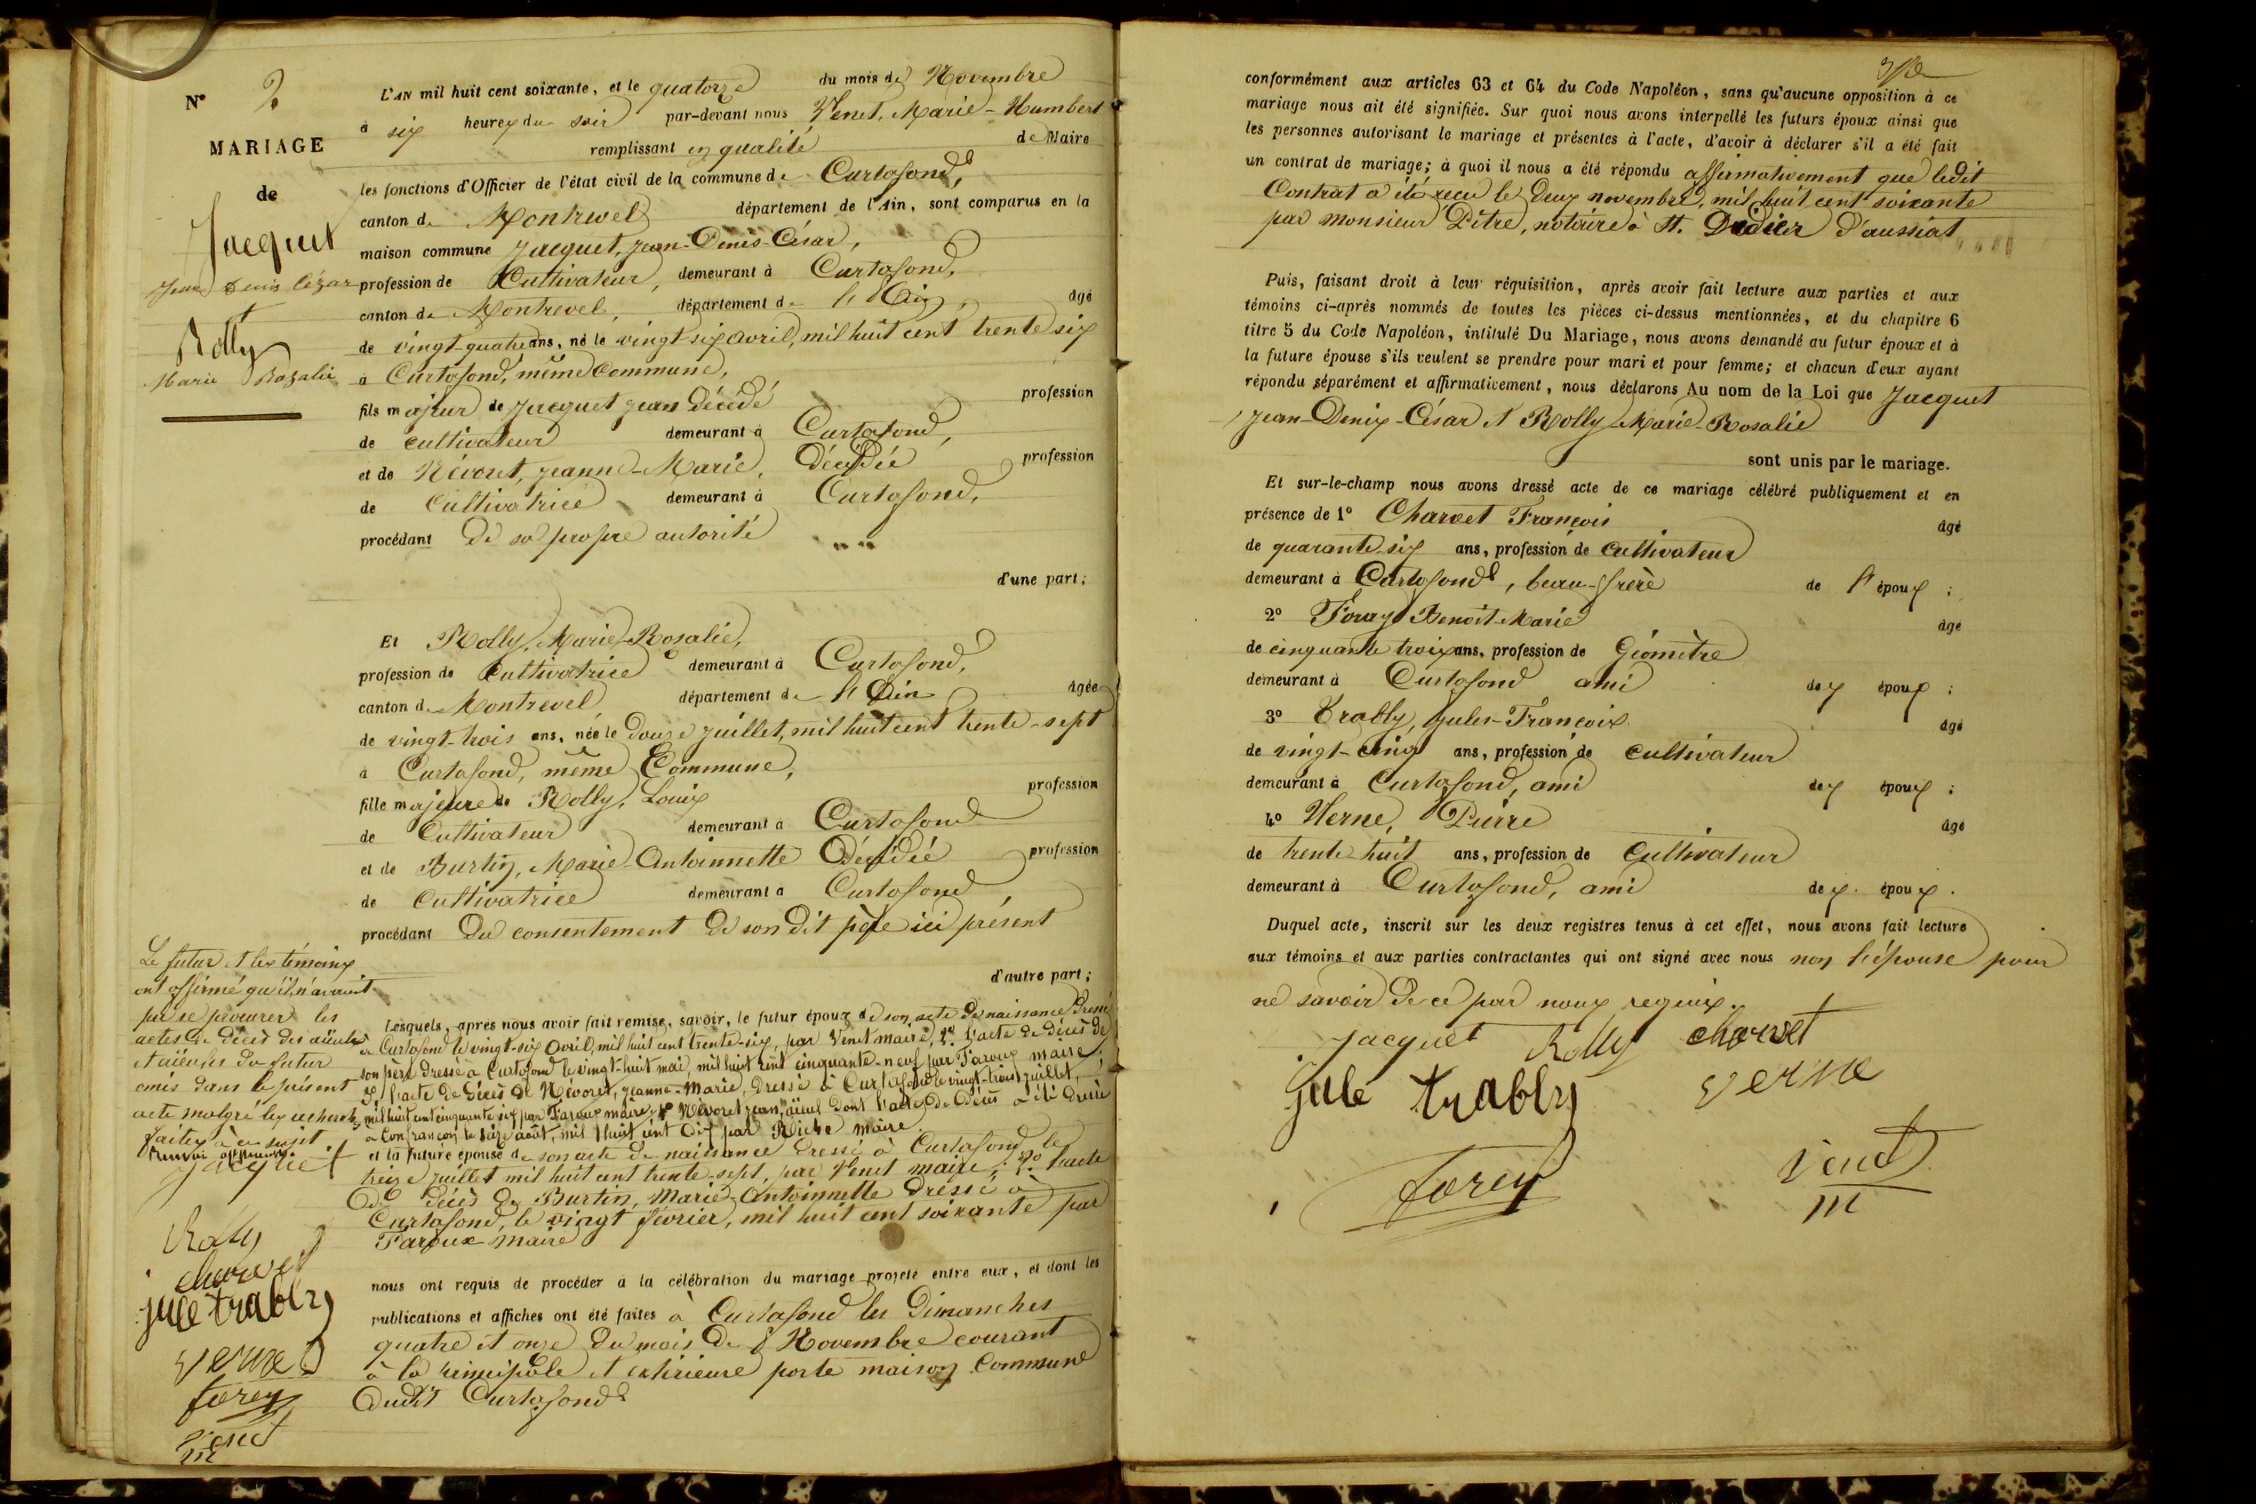 N° 2
MARIAGE
de
Jacquet
Jean Denis Cézar
et
Rolly
Marie Rozalie
L'AN mil huit cent soixante, et le quatorze du mois de Novembre
à six heures du soir par-devant nous Venet, Marie-Humbert
remplissant en qualité de Maire
les fonctions d'Officier de l'état civil de la commune de Curtafond,
canton de Montrevel département de l'Ain, sont comparus en la
maison commune Jacquet, Jean-Denis-César,
profession de Cultivateur, demeurant à Curtafond,
canton de Montrevel, département de l'Ain, âgé
de vingt-quatre ans, né le vingt-six avril, mil huit cent trente six
à Curtafond, même Commune,
fils majeur de Jacquet Jean Décédé profession
de cultivateur demeurant à Curtafond,
et de Névoret, Jeanne-Marie, Décédée profession
de Cultivatrice demeurant à Curtafond,
procédant De sa propre autorité
d'une part;
Et Rolly, Marie-Rosalie,
profession de Cultivatrice demeurant à Curtafond,
canton de Montrevel département de l'Ain âgée
de vingt-trois ans, née le Douze juillet, mil huit cent trente-sept
à Curtafond, même Commune,
fille majeure de Rolly, Louis profession
de Cultivateur demeurant à Curtafond
et de Burtin, Marie-Antoinnette Décédée profession
de Cultivatrice demeurant à Curtafond
procédant Du consentement de son dit père ici présent
d'autre part;
Le futur et les témoins
ont affirmé qu'il n'avaient
pu se procurer les
actes de décès des aïeuls
et aïeules du futur
omis dans le présent
acte malgré les recherches
faites à ce sujet.
Renvoi approuvé.
Jacquet
Rolly
charvet
jule trably
verne
forey
Venet
m
Lesquels, après nous avoir fait remise, savoir, le futur époux de son acte de naissance Dressé
à Curtafond le vingt-six Avril, mil huit cent trente-six, par Venet maire, 2° l'acte de décès de
son père dressé à Curtafond le vingt-huit mai, mil huit cent cinquante-neuf par Faroux maire;
3° l'acte de décès de Névoret, Jeanne-Marie, Dressé à Curtafond le vingt-trois juillet,
mil huit cent cinquante six par Faroux maire; 4° Névoret Jean, aïeul dont l'acte de Décès a été dressé
à Confrançon le seize août, mil huit cent dix par Riche maire.
et la future épouse de son acte de naissance Dressé à Curtafond le
treize juillet mil huit cent trente-sept, par Venet maire; 2° l'acte
de décès de Burtin, Marie-Antoinnette Dressé à
Curtafond, le vingt février, mil huit cent soixante par
Faroux maire
nous ont requis de procéder à la célébration du mariage projeté entre eux, et dont les
publications et affiches ont été faites à Curtafond les Dimanches
quatre et onze du mois de Novembre courant
à la principale et extérieure porte maison Commune
Dudit Curtafond
conformément aux articles 63 et 64 du Code Napoléon, sans qu'aucune opposition à ce
mariage nous ait été signifiée. Sur quoi nous avons interpellé les futurs époux ainsi que
les personnes autorisant le mariage et présentes à l'acte, d'avoir à déclarer s'il a été fait
un contrat de mariage; à quoi il nous a été répondu affirmativement que ledit
Contrat a été reçu le Deux novembre, mil huit cent soixante
par monsieur Pitre, notaire à St. Didier D'aussiat
Puis, faisant droit à leur réquisition, après avoir fait lecture aux parties et aux
témoins ci-après nommés de toutes les pièces ci-dessus mentionnées, et du chapitre 6
titre 5 du Code Napoléon, intitulé Du Mariage, nous avons demandé au futur époux et à
la future épouse s'ils veulent se prendre pour mari et pour femme; et chacun d'eux ayant
répondu séparément et affirmativement, nous déclarons Au nom de la Loi que Jacquet
Jean-Denis-César et Rolly Marie-Rosalie
sont unis par le mariage.
Et sur-le-champ nous avons dressé acte de ce mariage célébré publiquement et en
présence de 1° Charvet François âgé
de quarante-six ans, profession de Cultivateur
demeurant à Curtafond, beau-frère de l'époux;
2° Foray Benoit-Marie âgé
de cinquante trois ans, profession de Géomètre
demeurant à Curtafond ami des époux;
3° Trably, Jules-François âgé
de vingt-cinq ans, profession de cultivateur
demeurant à Curtafond, ami des époux;
4° Verne, Pierre âgé
de trente-huit ans, profession de Cultivateur
demeurant à Curtafond, ami des époux.
Duquel acte, inscrit sur les deux registres tenus à cet effet, nous avons fait lecture
aux témoins et aux parties contractantes qui ont signé avec nous non l'épouse pour
ne savoir de ce par nous requis.
Jacquet Rolly charvet
jule trably verne
forey Venet
m